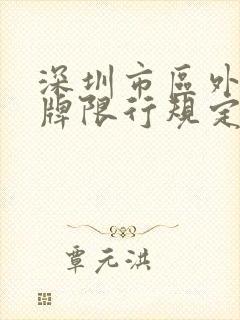 深圳市区外
牌限行规定
覃元洪